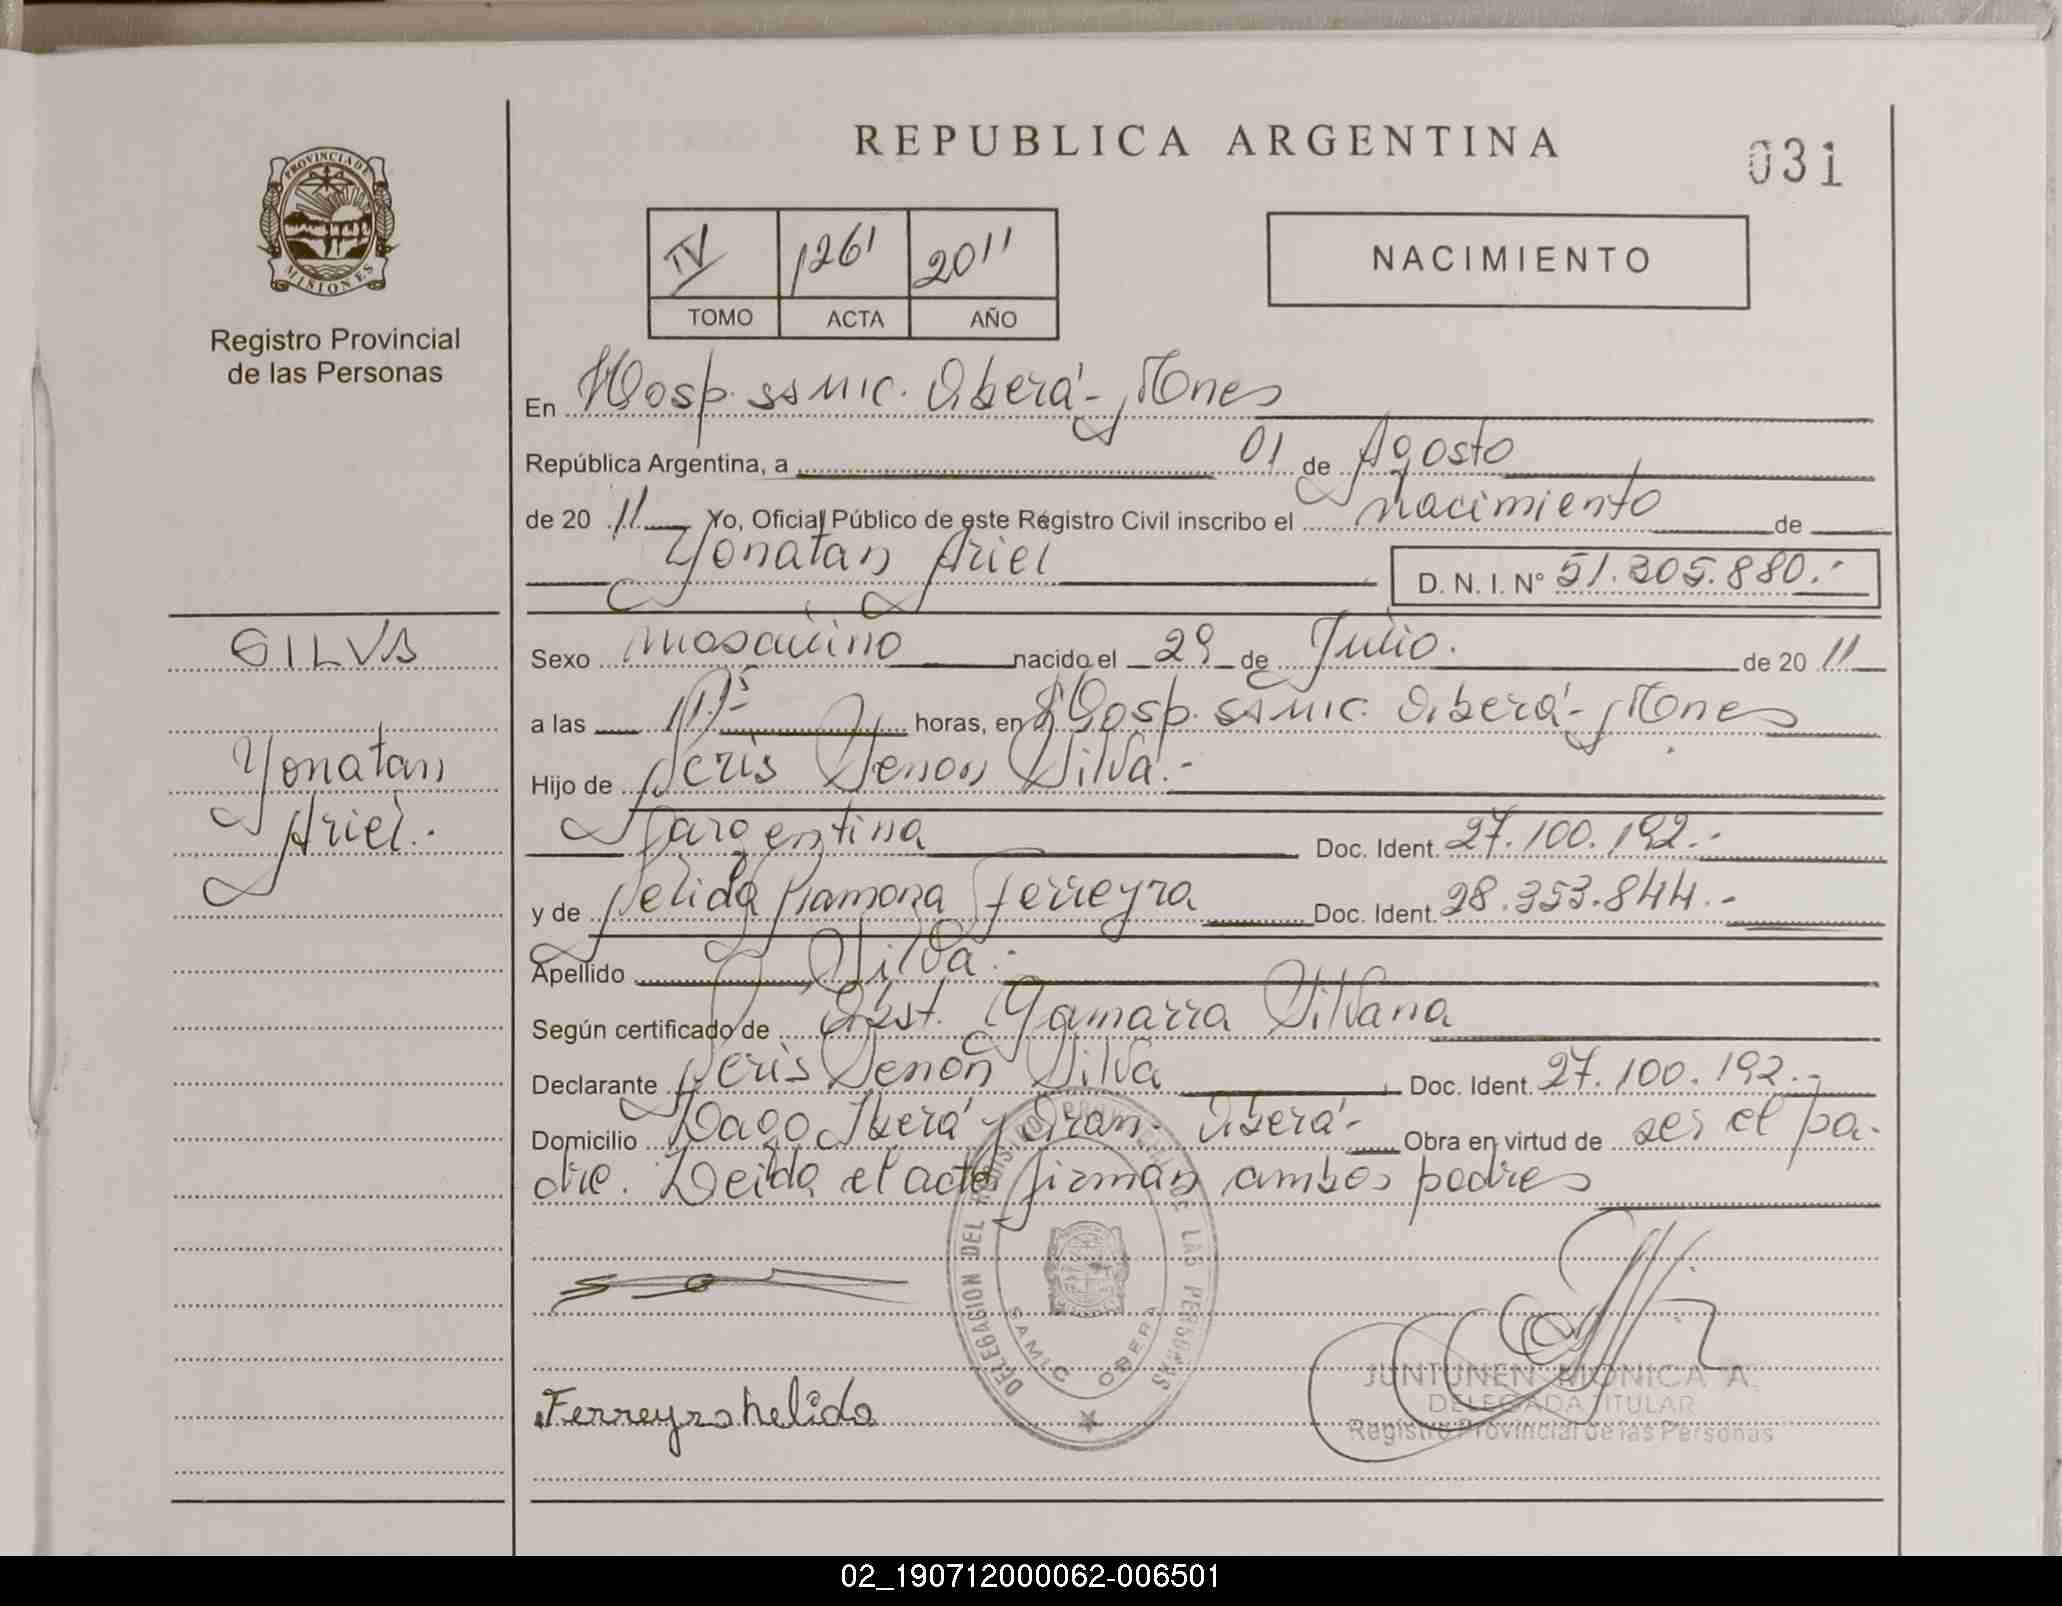 REPUBLICA ARGENTINA
031
PROVINCIA DE MISIONES
Registro Provincial
de las Personas
IV 1261 2011
TOMO ACTA AÑO
NACIMIENTO
En Hosp. SAMIC. Oberá - Mnes
República Argentina, a 01 de Agosto
de 20 11 Yo, Oficial Público de este Registro Civil inscribo el nacimiento de
Yonatan Ariel D. N. I. N° 51.305.880.-
SILVA
Yonatan
Ariel.
Sexo masculino nacido el 29 de Julio. de 20 11
a las horas, en Hosp. SAMIC. Oberá - Mnes
Hijo de Silva.-
argentina Doc. Ident. 27.100.192.-
y de Nelida Ramona Ferreyra Doc. Ident. 28.353.844.-
Apellido Silva.-
Según certificado de Obst. Gamarra Silvana
Declarante Silva Doc. Ident. 27.100.192.-
Domicilio Lago Iberá y Oberá - Obra en virtud de ser el pa-
dre. Leida el acta firman ambos padres
DELEGACION DEL REGISTRO PROVINCIAL DE LAS PERSONAS
SAMIC OBERA
Ferreyra Nelida
JUNTUNEN MONICA A.
DELEGADA TITULAR
Registro Provincial de las Personas
02_190712000062-006501